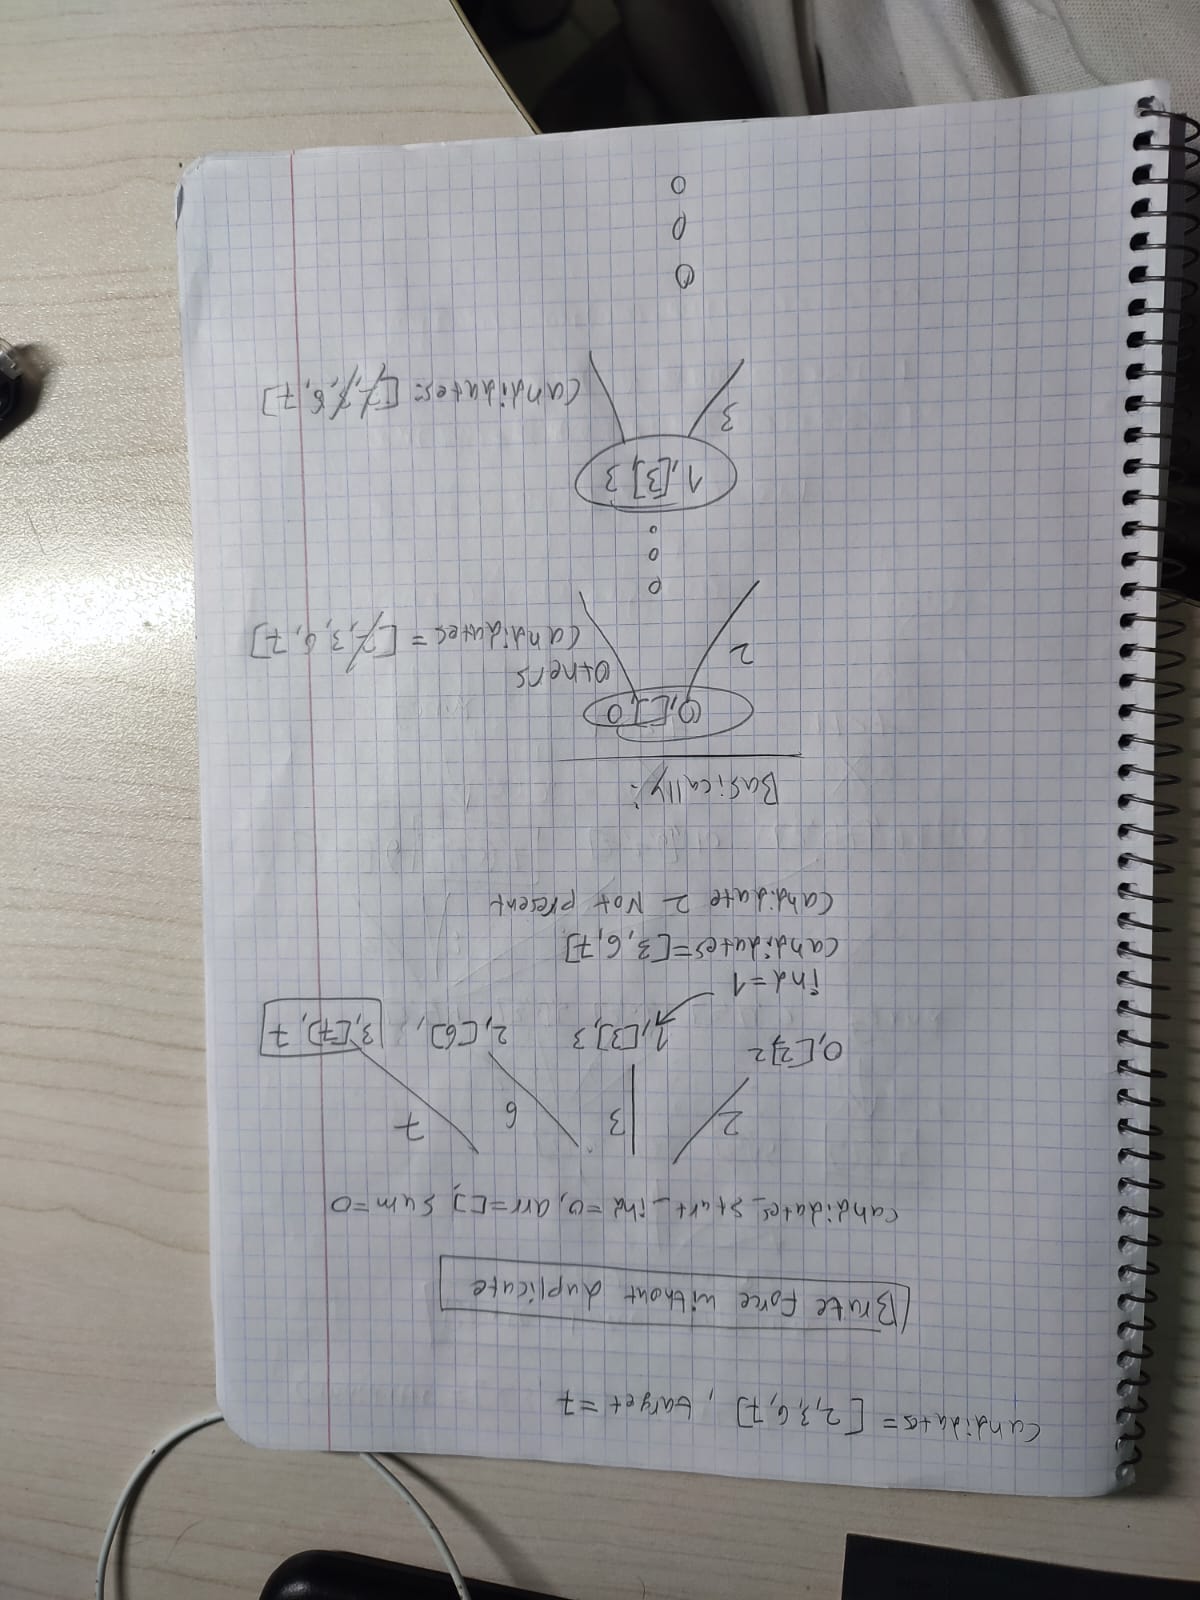 Candidates = [2,3,6,7], target = 7
Brute force without duplicate
Candidates_start_ind = 0, arr = [], sum = 0
2 3 6 7
0,[2],2 1,[3],3 2,[6], 3,[7],7
ind = 1
candidates = [3,6,7]
Candidate 2 Not present
Basically:
0,[],0
2 Others
Candidates = [2,3,6,7]
1,[3],3
3
Candidates: [2,3,6,7]